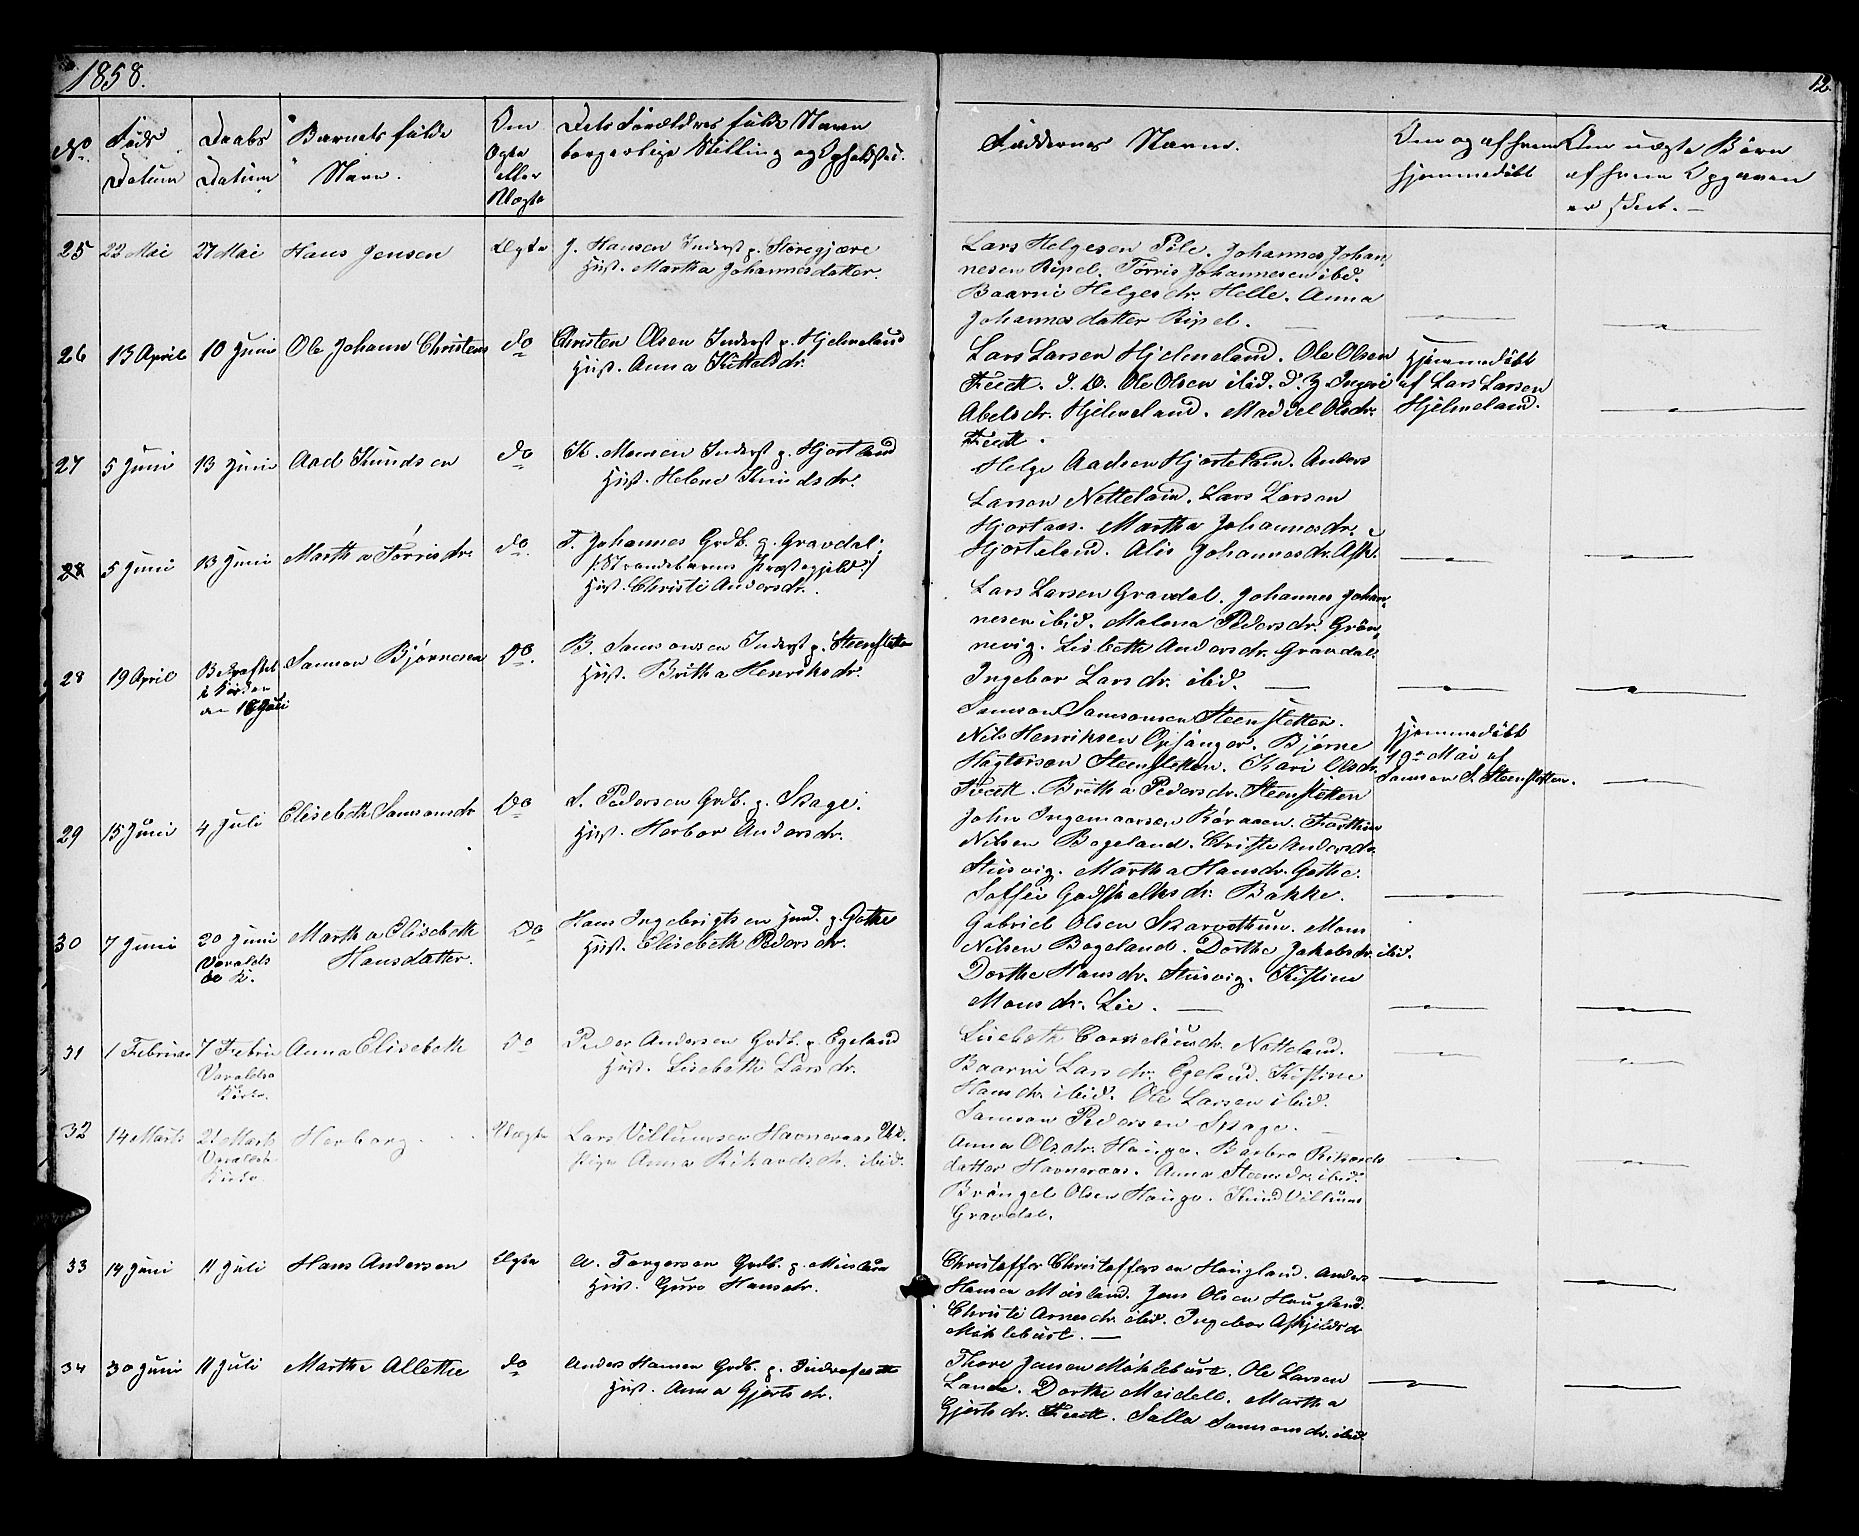 1858.
12.
No.
Føds
Datum
Daabs
Datum
Barnets fulde
Navn.
Om
Ægte
eller
Uægte
Dets Forældres fulde Navn
borgerlige Stilling og Opholdsted.
Faddernes Navne.
Om og af hvem
hjemmedøbt
Om uægte Børn
af hvem Opgaven
er skeet. —
25 22 Mai 27 Mai Hans Jensen Ægte J. Hansen Inderst p. Støregjære
Hust. Martha Johannesdatter.
Lars Helgesen Pile. Johannes Johan-
nesen Ripel. Tørris Johannesen ibid.
Baarni Helgesdr. Helle. Anna
Johannesdatter Ripel. —
26 13 April 10 Juni Ole Johann Christens do Christen Olsen Inderst p. Hjelmeland
Hust. Anna Kittelsdr.
Lars Larsen Hjelmeland. Ole Olsen
Feedt. d. Æ. Ole Olsen ibid. d. Y. Ingeri
Abelsdr. Hjelmeland. Maddel Olsdr.
Feedt.
Hjemmedøbt
af Lars Larsen
Hjelmeland.
27 5 Juni 13 Juni Aad Knudsen do K. Monsen Inderst p. Hjorteland
Hust. Helene Knudsdr.
Helge Aadsen Hjorteland. Anders
Larsen Netteland. Lars Larsen
Hjortaas. Martha Johannesdr.
Hjorteland. Alis Johannesdr. Aske.
28 5 Juni 13 Juni Martha Tørrisdr. do. T. Johannes Grdb. g. Gravdal.
/: Strandebarms Præstegjeld :/
Hust. Christi Andersdr.
Lars Larsen Gravdal. Johannes Johan-
nesen ibid. Malena Pedersdr. Grøn-
nevig. Lisbeth Andersdr. Gravdal.
Ingebor Larsdr. ibid. —
28 19 April Bekræftet
i Kirken
den 18 Juli
Samson Bjørnesen do. B. Samsonsen Inderst p. Steensletten
Hust. Britha Henriksdr.
Samson Samsonsen Steensletten.
Nils Henriksen Opsanger. Bjørne
Hagtorsen Steensletten. Kari Olsdr.
Feedt. Britha Pedersdr. Steensletten
Hjemmedøbt
19de Mai af
Samson S. Steensletten.
29 15 Juni 4 Juli Elisebeth Samsonsdr do S. Pedersen Grdb. p. Skage.
Hust. Herbor Andersdr.
John Ingemarsen Røraaen.
Nilsen Bogeland. Christi Andersdr.
Stusvig. Martha Hansdr. Gothe.
Soffie Godskalksdr. Bakke.
30 7 Juni 20 Juni
Varalds
øe K.
Martha Elisebeth
Hansdatter.
do Hans Ingebrigtsen Hmd. p. Gothe
Hust. Elisebeth Pedersdr.
Gabriel Olsen Skarvethun. Mons
Nilsen Bogeland. Dorthe Jakobsdr. ibid.
Dorthe Hansdr. Stusvig. Kistine
Monsdr. Lie. —
31 1 Februar 7 Febru
Varaldsø
Kirke.
Anna Elisebeth do Peder Andersen Grdb. p. Egeland
Hust. Lisebeth Larsdr.
Lisebeth Corneliusdr. Netteland.
Baarni Larsdr. Egeland. Kistine
Hansdr. ibid. Ole Larsen ibid.
Samson Pedersen Skage. —
32 14 Marts 21 Marts
Varaldsø
Kirke
Herborg Uægte Lars Villumsen Havneraas
Pige Anna Rikardsdr. ibid.
Anna Olsdr. Hauge. Barbro Rikards
datter Havneraas. Anna Steensdr. ibid.
Brøngel Olsen Hauge. Knud Villums
Gravdal.
33 14 Juni 11 Juli Hans Andersen Ægte A. Torgersen Grdb. p. Miusland
Hust. Guro Hansdr.
Christoffer Christoffersen Haugland. Anders
Hansen Møisland. Jens Olsen Haugland.
Christi Arnesdr. ibid. Ingebor Askjeldsdr
Møklebust. —
34 30 Juni 11 Juli Marthe Allethe do Anders Hansen Grdb. p. Indrefeedt
Hust. Anna Gjertsdr.
Thore Jansen Møklebust. Ole Larsen
Lande. Dorthe Meidell. Martha
Gjertsdr. Feedt. Salla Samsonsdr. ibid.